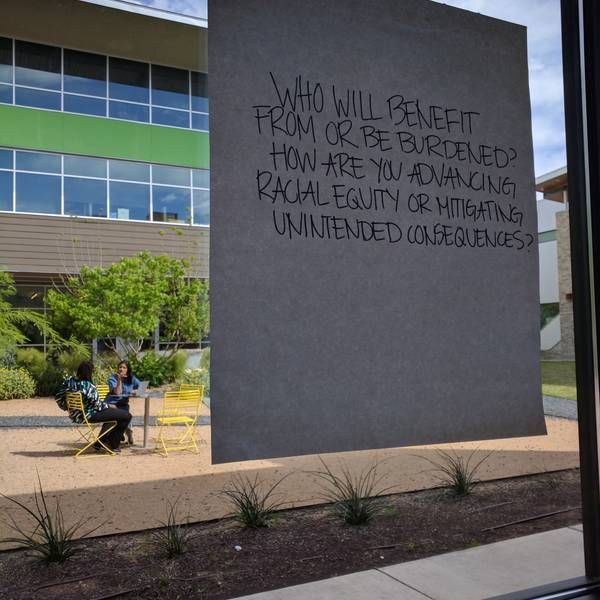 WHO WILL BENEFIT
FROM OR BE BURDENED?
HOW ARE YOU ADVANCING
RACIAL EQUITY OR MITIGATING
UNINTENDED CONSEQUENCES?